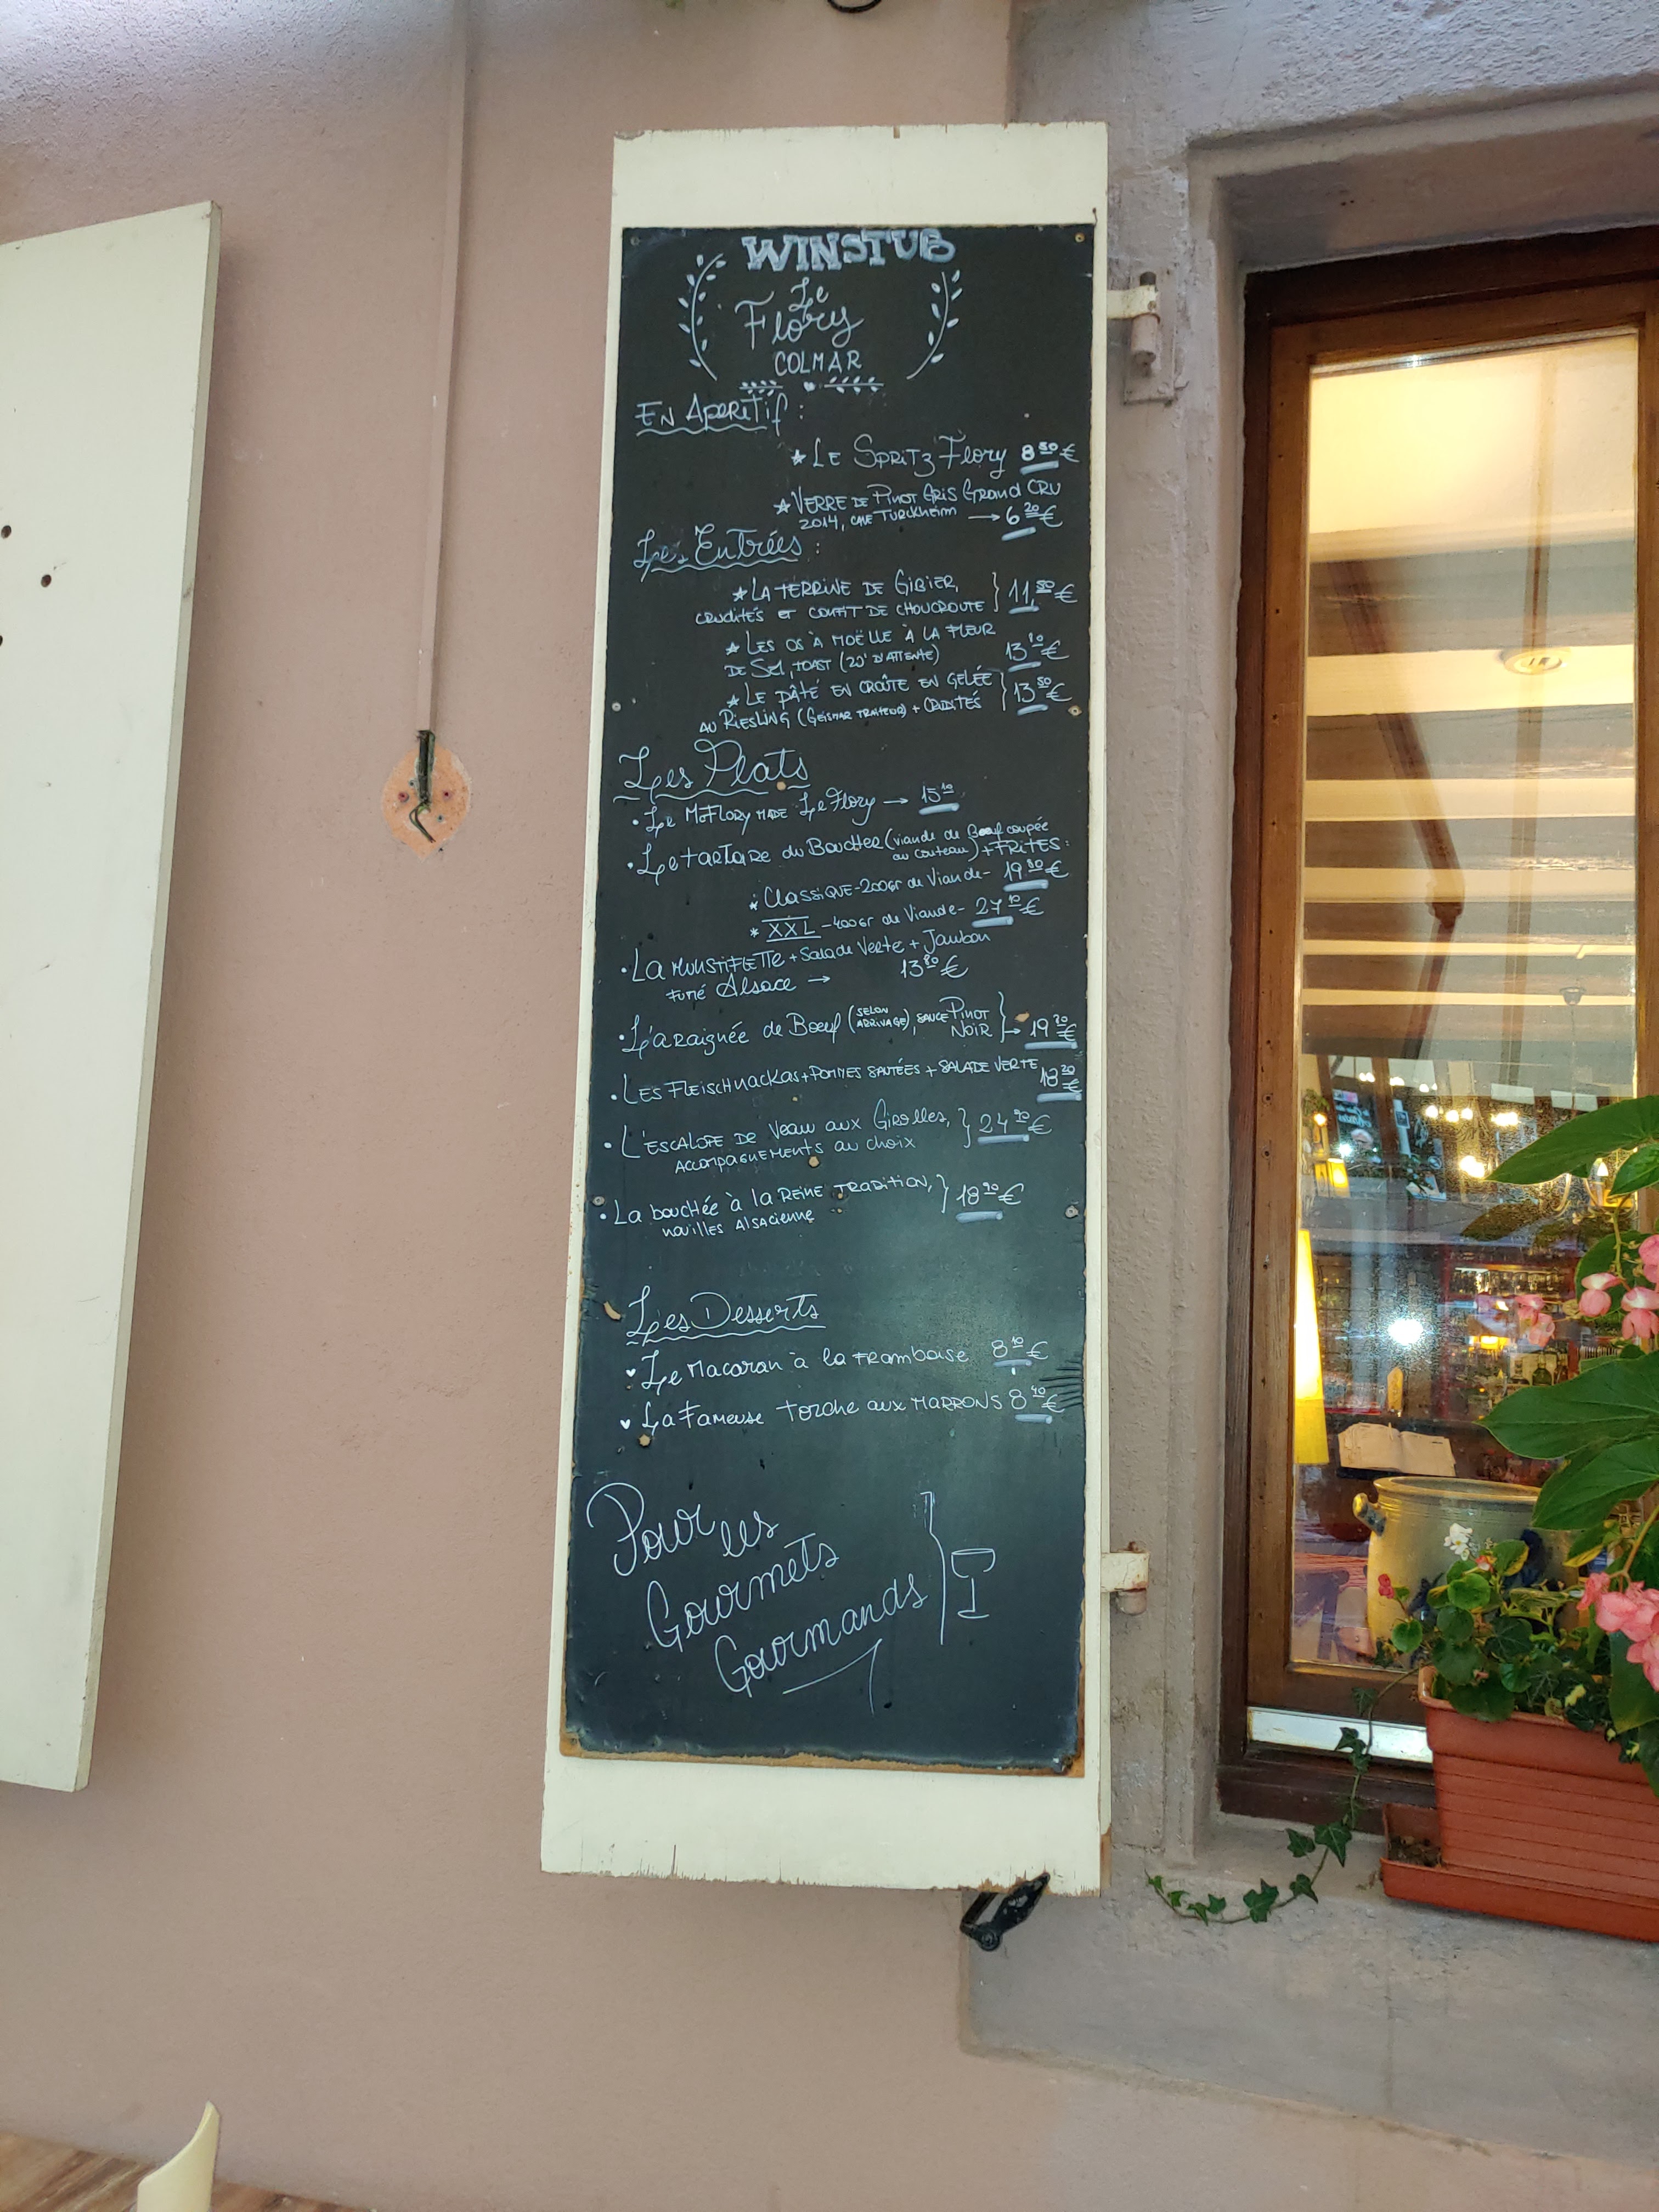 WINSTUB
Le
Flory
COLMAR
En Aperitif :
Le Spritz Flory 8 50 €
Verre de Pinot Gris Grand Cru
2014, cave Turckheim → 6 20 €
Les Entrées :
La terrine de Gibier,
crudités et confit de choucroute } 11,80 €
Les os à moëlle à la fleur
de sel, toast (20' d'attente) 13 €
Le pâté en croûte en gelée
au Riesling (Geismar traiteur) + crudités } 13 50 €
Les Plats
• Le McFlory made Le Flory → 15 10
• Le tartare du Boucher (viande de Bœuf coupée
au couteau) + FRITES :
* Classique - 200gr de Viande - 19 80 €
* XXL - 400gr de Viande - 27 10 €
• La Munstiflette + Salade Verte + Jambon
fumé Alsace → 13 80 €
• L'araignée de Bœuf (selon arrivage), sauce Pinot
Noir } → 19 20 €
• Les Fleischnackas + pommes sautées + salade verte 18 20 €
• L'escalope de Veau aux Girolles,
accompagnements au choix } 24 90 €
• La bouchée à la Reine tradition,
nouilles Alsacienne } 18 90 €
Les Desserts
♥ Le Macaron à la framboise 8 10 €
♥ La Fameuse torche aux MARRONS 8 40 €
Pour les
Gourmets
Gourmands